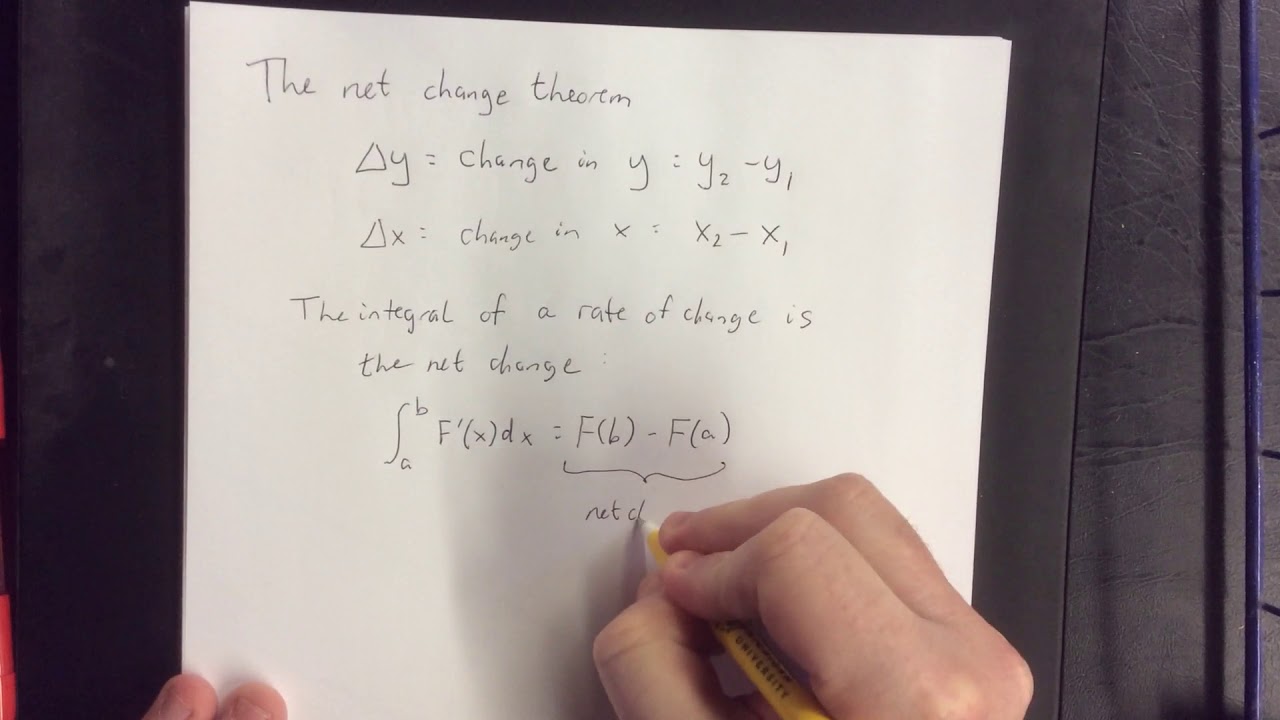 The net change theorem
Δy = change in y = y₂ - y₁
Δx = change in x = x₂ - x₁
The integral of a rate of change is
the net change :
∫ₐᵇ F'(x)dx = F(b) - F(a)
net ch
UNIVERSITY